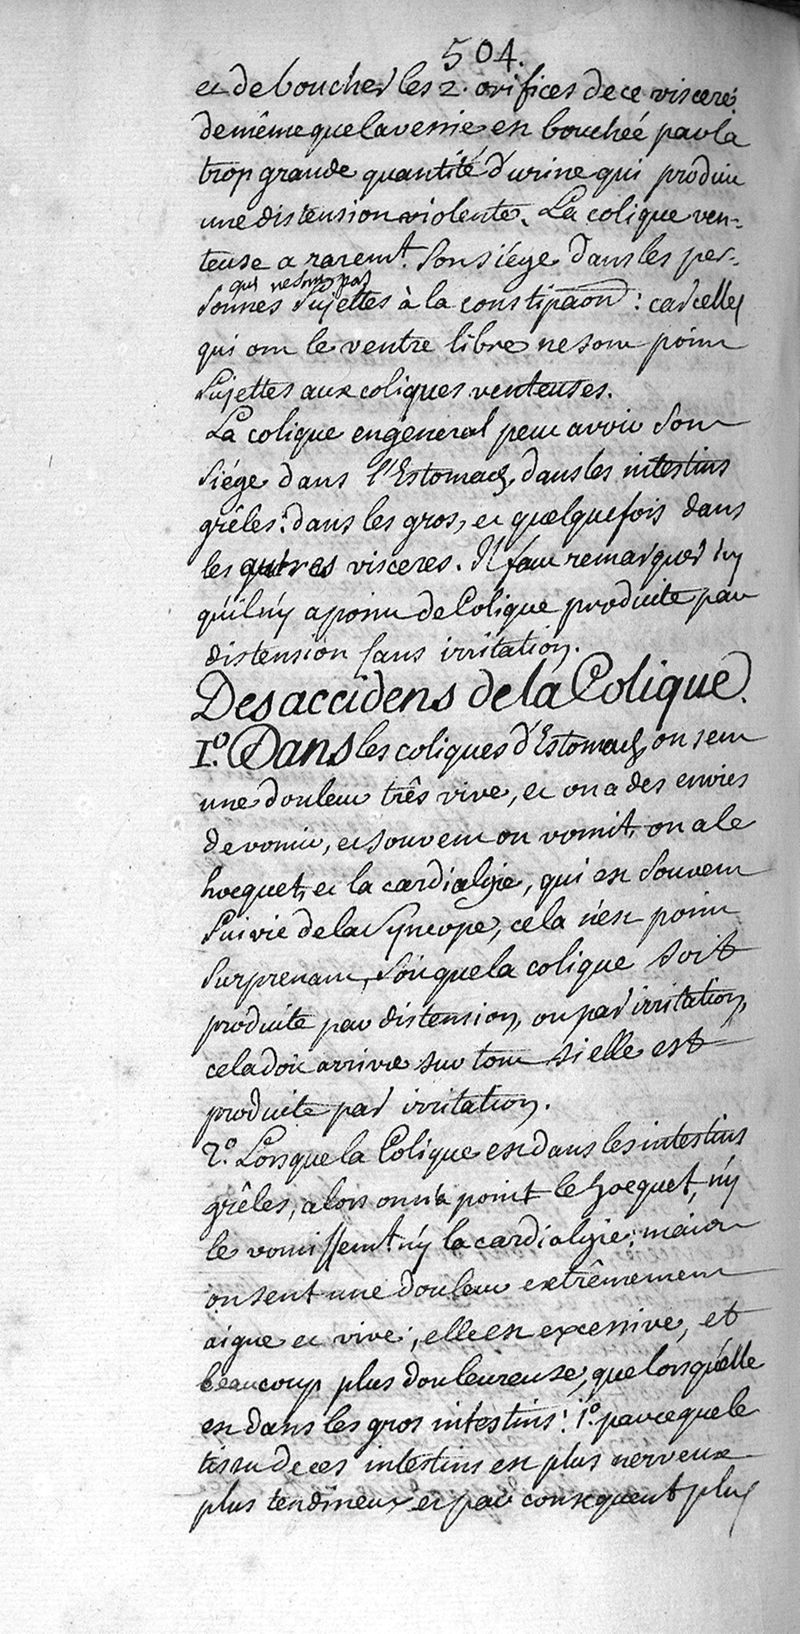 504.
et de boucher les 2. orifices de ce viscere.
de même que la vessie est bouchée par la
trop grande quantité d'urine qui produit
une distension violente. La colique ven-
teuse a raremt. son siége dans les per-
qui ne sont pas
sonnes sujettes à la constipaon : car celles
qui ont le ventre libre ne sont point
sujettes aux coliques venteuses.
La colique en général peut avoir son
siége dans l'Estomach, dans les intestins
grêles : dans les gros, et quelquefois dans
les autres visceres. Il faut remarquer icy
qu'il n'y a point de Colique produite par
distension sans irritation.
Des accidens de la Colique.
1º. Dans les coliques d'Estomach, on sent
une douleur três vive, et on a des envies
de vomir, et souvent on vomit, on a le
hocquet, et la cardialgie, qui est souvent
suivie de la syncope, cela n'est point
surprenant, soit que la colique soit
produite par distension, ou par irritation,
cela doit arriver sur tout si elle est
produite par irritation.
2º. Lorsque la Colique est dans les intestins
grêles, alors on n'a point le hocquet, n'y
le vomissemt. n'y la cardialgie : mais
on sent une douleur extrêmement
aigue et vive ; elle est excessive, et
beaucoup plus douleureuse, que lorsqu'elle
est dans les gros intestins : 1º. parceque le
tissu de ces intestins est plus nerveux
plus tendineux et par consequent plus